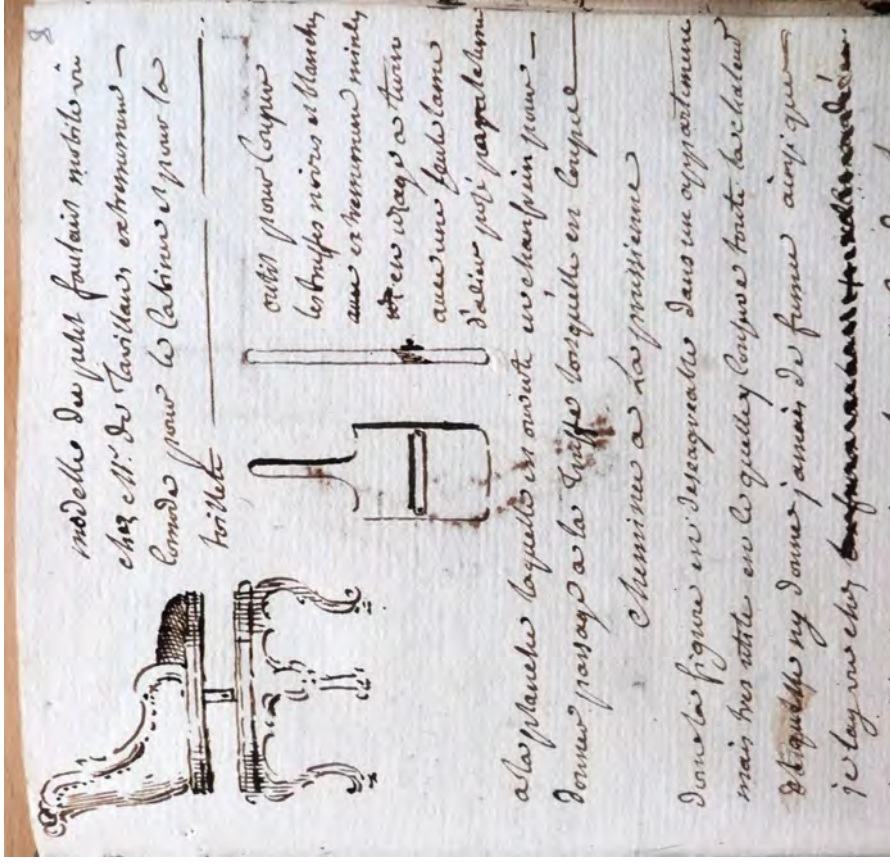 8
modelle du petit fauteuil mobile vu
chez Mr. de Tavillans extremement
comode pour le cabinet et pour la
toillete
outil pour couper
les truffes noires et blanches
extremement minces
en usage a turin
avec une seule lame
d'acier posé
a la planche laquelle est ouverte en chanfrein pour
donner passage a la truffe lorsquelle est coupée
Cheminée a La prussienne
dont la figure est desagreable dans un appartement
mais tres utile en ce quelle y conserve toute la chaleur
et quelle ny donne jamais de fumée ainsi que
je lay vu chez